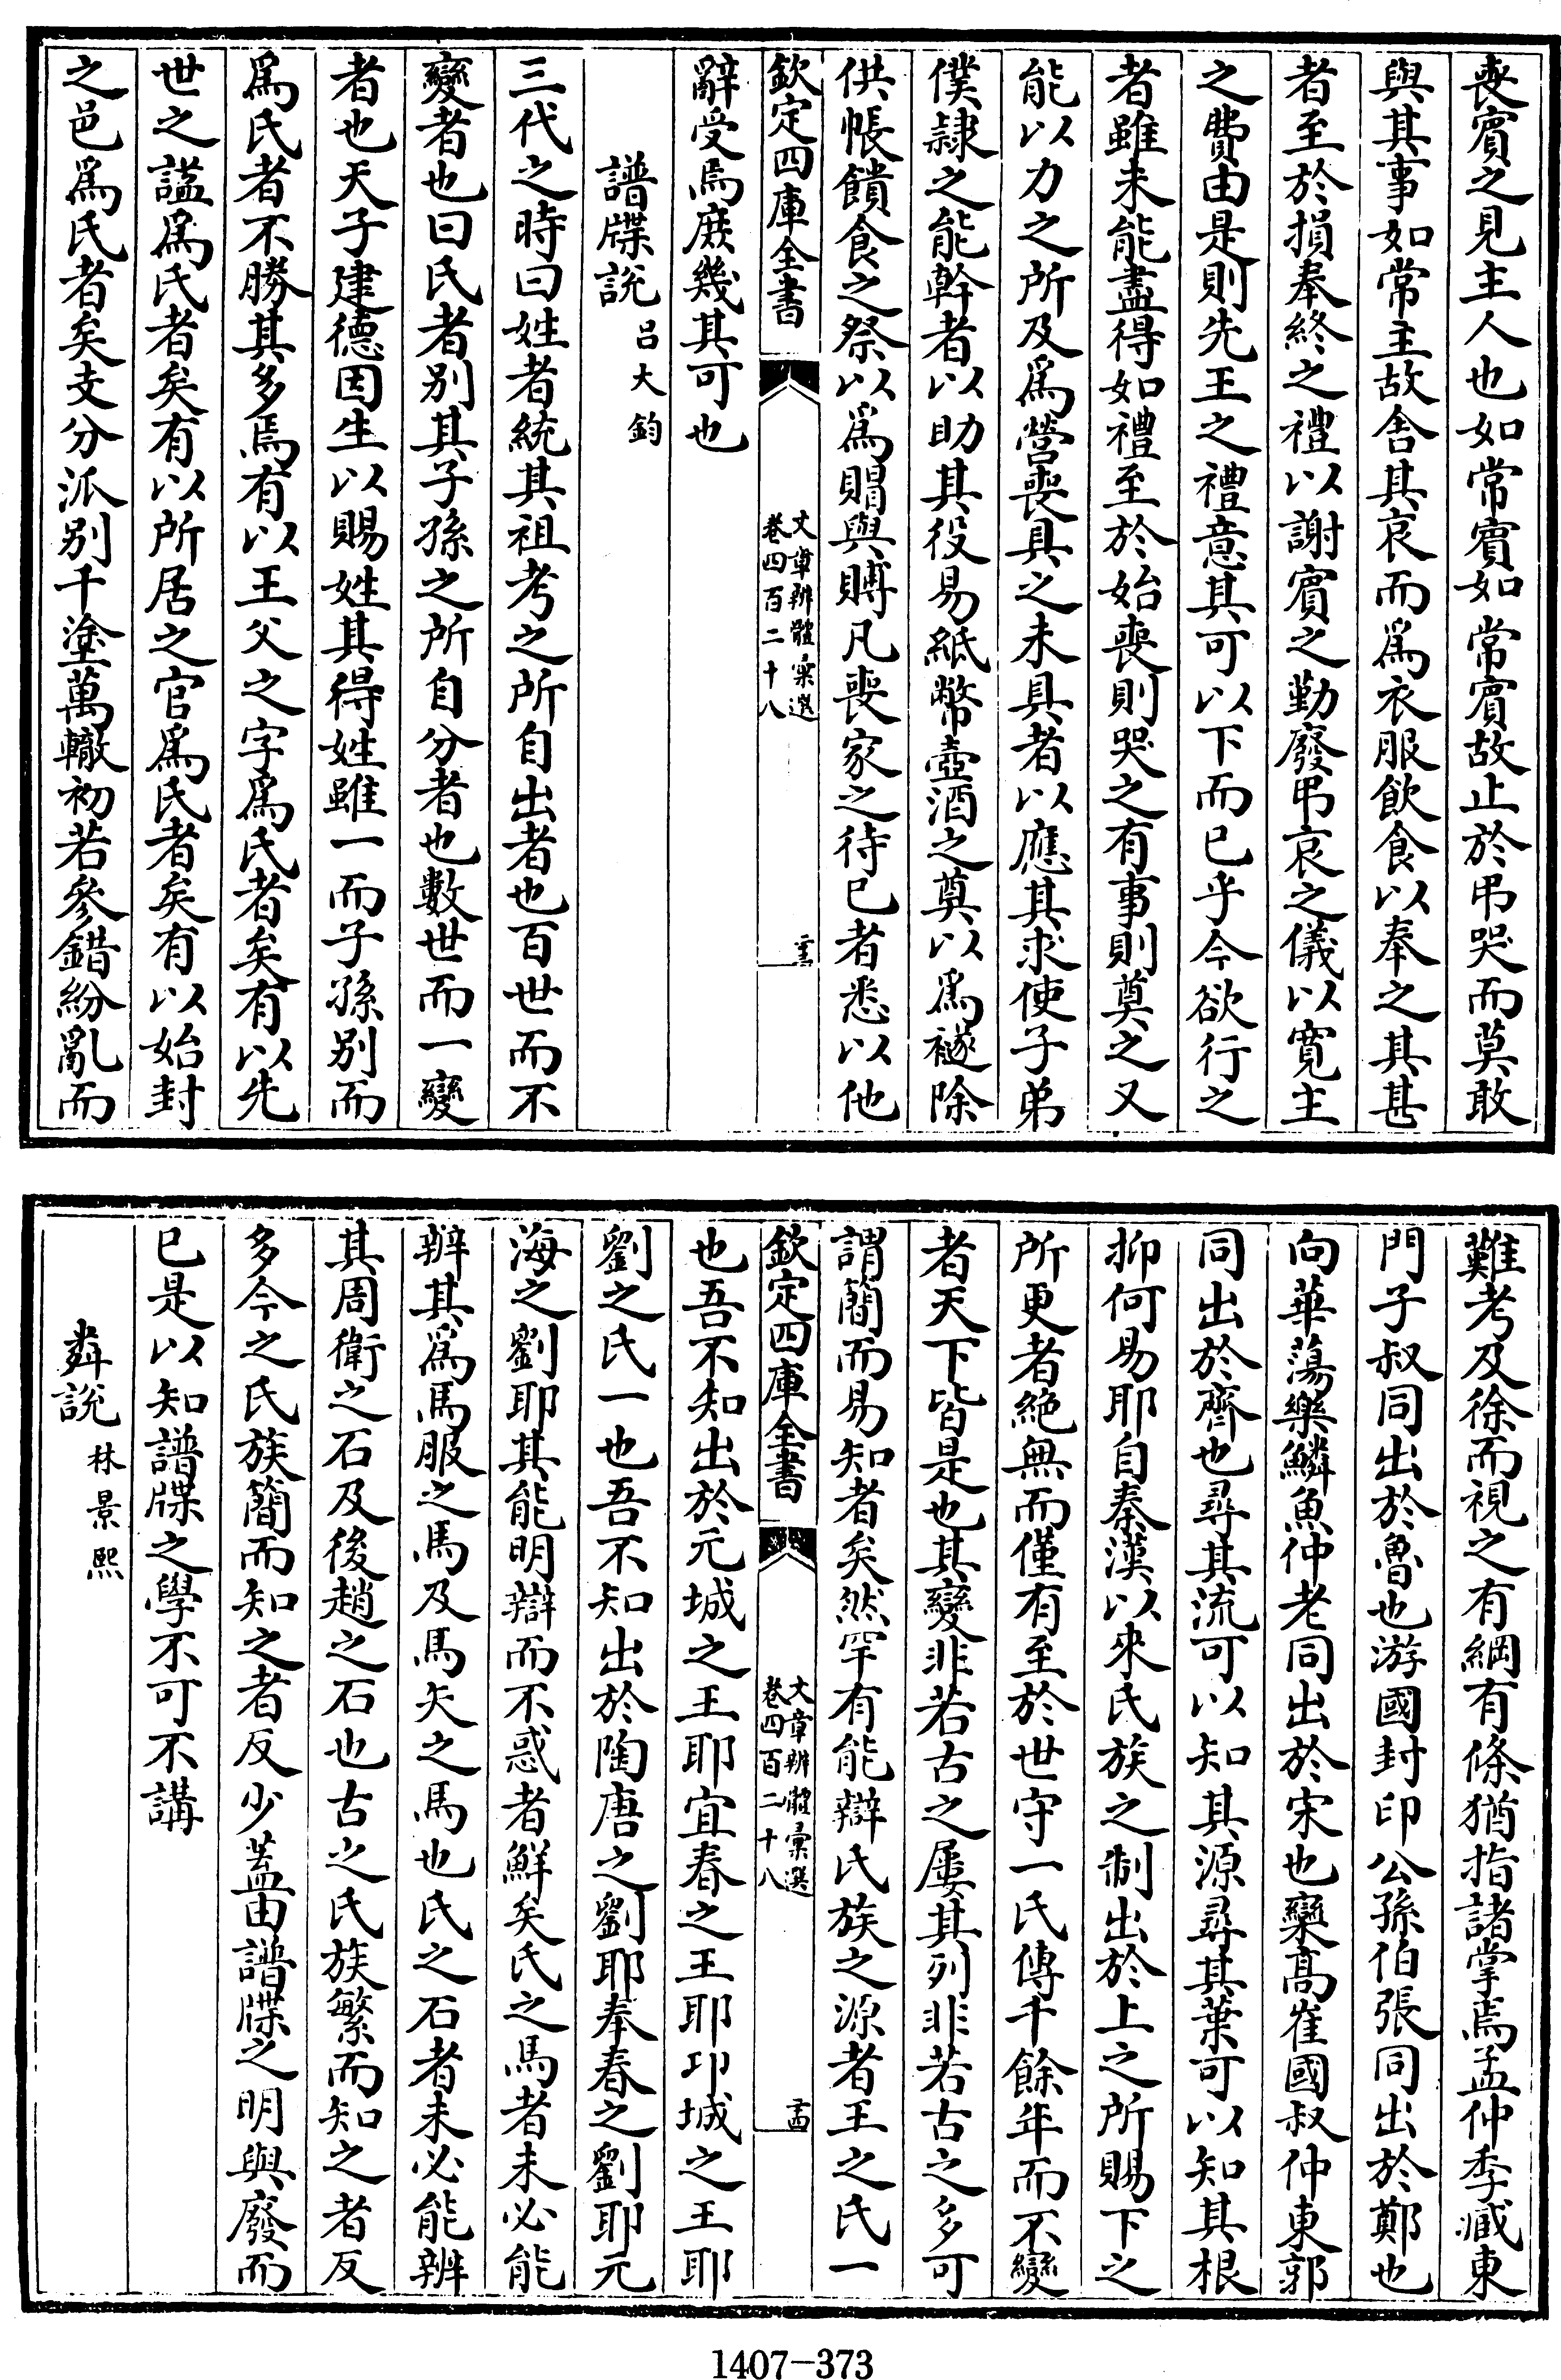 喪賓之見主人也如常賓如常賓故止於弔哭而莫敢
與其事如常主故舍其哀而爲衣服飲食以奉之其甚
者至於損奉終之禮以謝賓之勤廢弔哀之儀以寛主
之費由是則先王之禮意其可以下而已乎今欲行之
者雖未能盡得如禮至於始喪則哭之有事則奠之又
能以力之所及爲營喪具之未具者以應其求使子弟
僕隷之能幹者以助其役易紙幣壺酒之奠以爲襚除
供帳饋食之祭以爲賵與賻凡喪家之待已者悉以他
欽定四庫全書
文章辨體彙選
卷四百二十八
辭受焉庶幾其可也
譜牒説 呂大鈞
三代之時曰姓者統其祖考之所自出者也百世而不
變者也曰氏者别其子孫之所自分者也數世而一變
者也天子建德因生以賜姓其得姓雖一而子孫别而
爲氏者不勝其多焉有以王父之字爲氏者矣有以先
世之謚爲氏者矣有以所居之官爲氏者矣有以始封
之邑爲氏者矣支分派别千塗萬轍初若參錯紛亂而
難考及徐而視之有綱有條猶指諸掌焉孟仲季臧東
門子叔同出於魯也游國封印公孫伯張同出於鄭也
向華蕩樂鱗魚仲老同出於宋也欒髙崔國叔仲東郭
同出於齊也尋其流可以知其源尋其葉可以知其根
抑何易耶自秦漢以來氏族之制出於上之所賜下之
所更者絶無而僅有至於世守一氏傳千餘年而不變
者天下皆是也其變非若古之屢其列非若古之多可
謂簡而易知者矣然罕有能辯氏族之源者王之氏一
欽定四庫全書
文章辨體彙選
卷四百二十八
也吾不知出於元城之王耶宜春之王耶邛城之王耶
劉之氏一也吾不知出於陶唐之劉耶奉春之劉耶元
海之劉耶其能明辯而不惑者鮮矣氏之馬者未必能
辨其爲馬服之馬及馬矢之馬也氏之石者未必能辨
其周衛之石及後趙之石也古之氏族繁而知之者反
多今之氏族簡而知之者反少葢由譜牒之明與廢而
已是以知譜牒之學不可不講
粦説 林景熙
1407-373